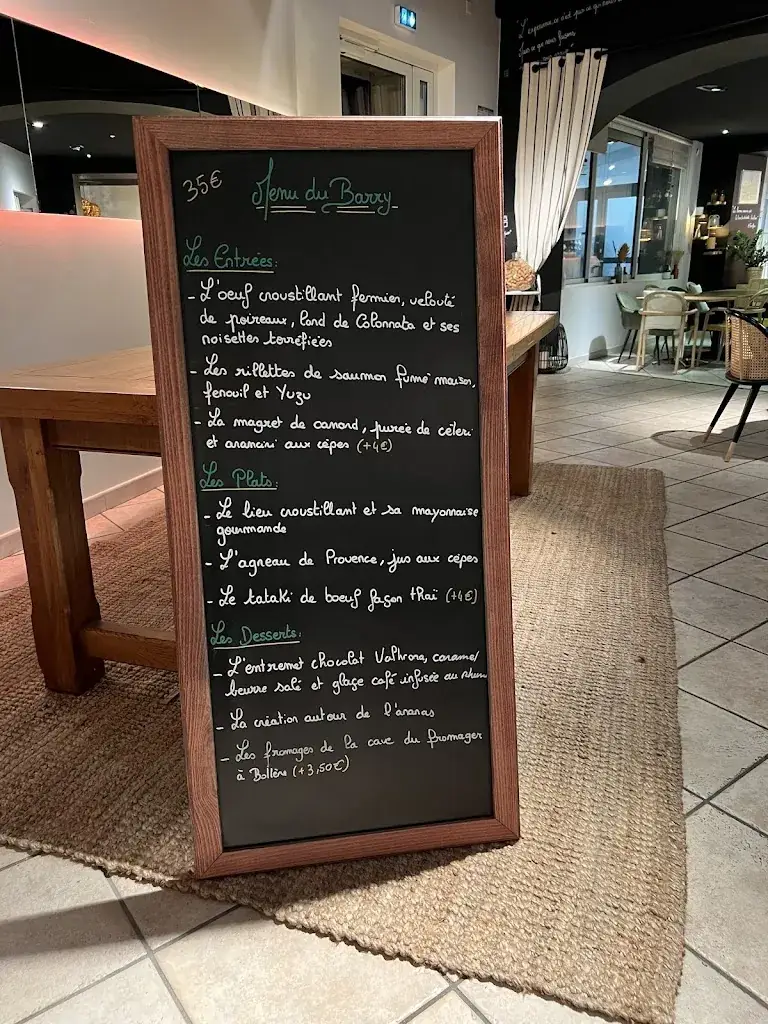 L'experience, ce n'est pas ce qui nous
35€
Menu du Barry
Les Entrées:
- L'oeuf croustillant fermier, velouté
de poireaux, lard de Colonnata et ses
noisettes torréfiées
- Les rillettes de saumon fumé maison,
fenouil et Yuzu
- La magret de canard, purée de céleri
et arancini aux cèpes (+4€)
Les Plats:
- Le lieu croustillant et sa mayonnaise
gourmande
- L'agneau de Provence, jus aux cèpes
- Le tataki de boeuf façon thaï (+4€)
Les Desserts:
- L'entremet chocolat Valhrona, caramel
beurre salé et glaçe café infusée au rhum
- La création autour de l'ananas
- Les fromages de la cave du fromager
à Bollène (+3,50€)